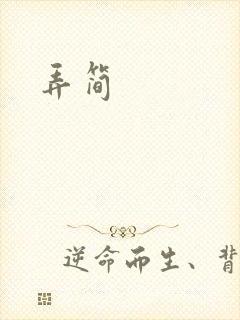 弄简
逆命而生、背